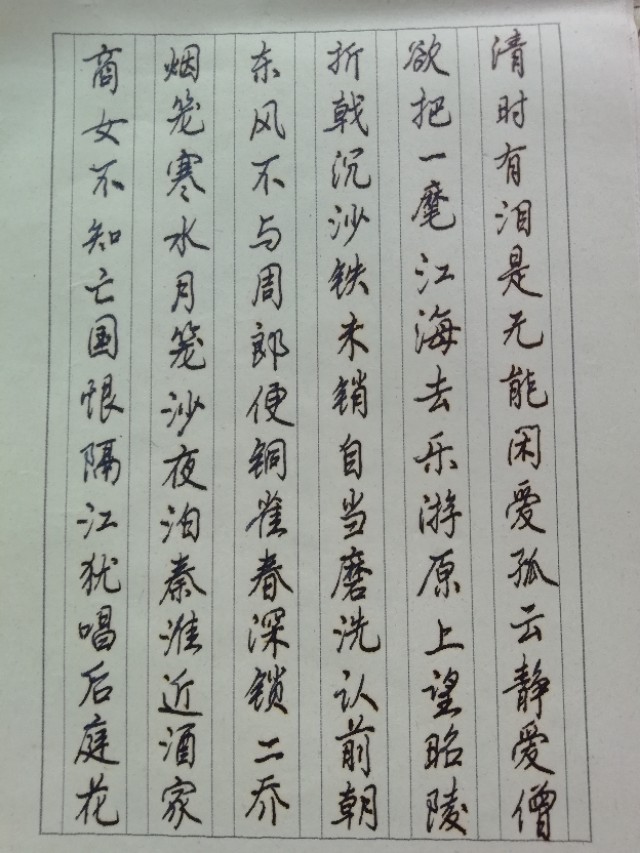 清时有泪是无能闲爱孤云静爱僧
欲把一麾江海去乐游原上望昭陵
折戟沉沙铁未销自当磨洗认前朝
东风不与周郎便铜雀春深锁二乔
烟笼寒水月笼沙夜泊秦淮近酒家
商女不知亡国恨隔江犹唱后庭花